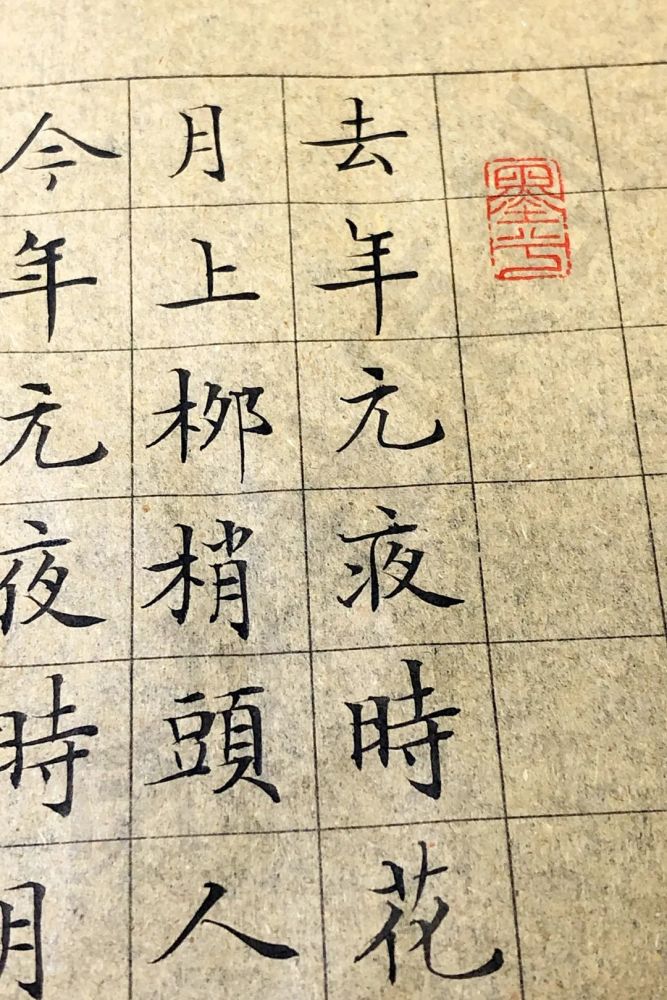 去年元夜時花
月上柳梢頭人
今年元夜時月